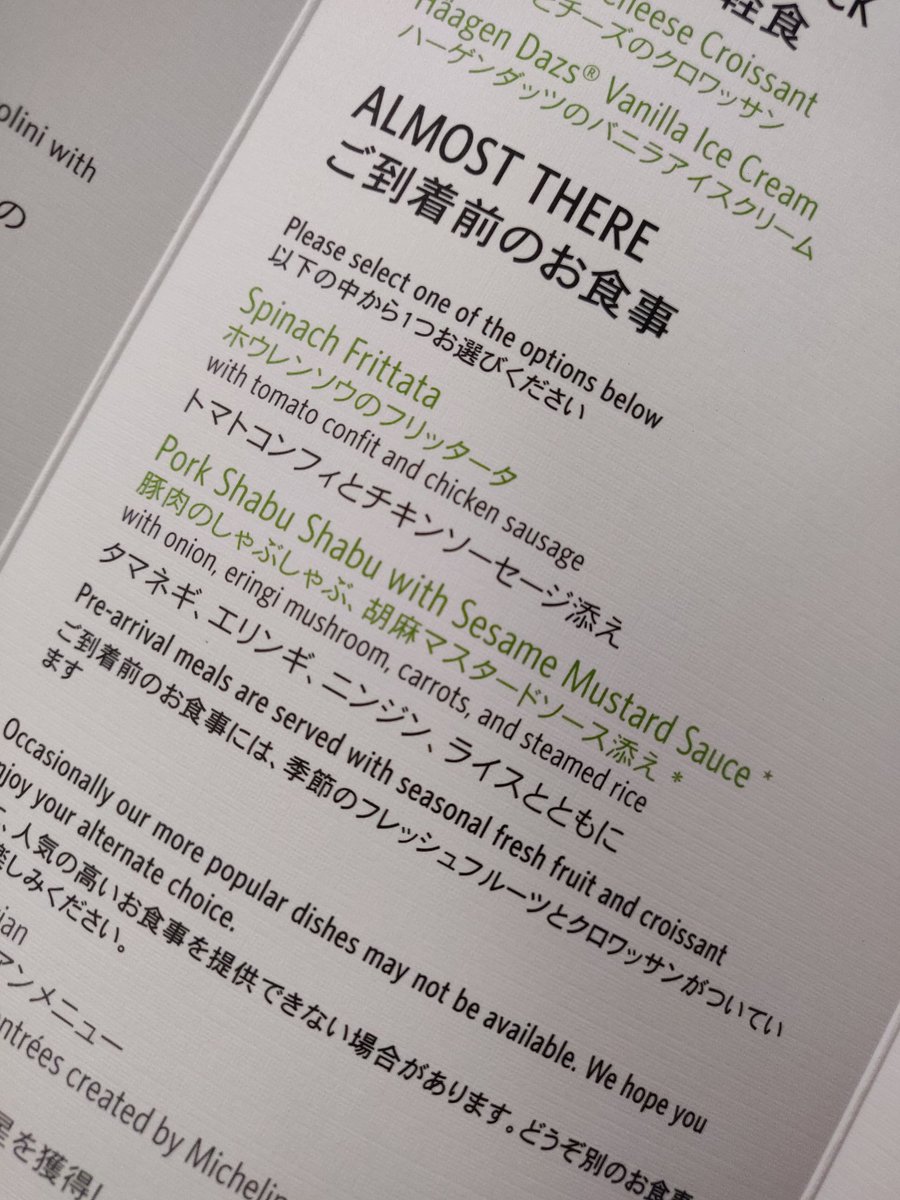 olini with
の
CK
軽食
Cheese Croissant
とチーズのクロワッサン
Häagen Dazs® Vanilla Ice Cream
ハーゲンダッツのバニラアイスクリーム
ALMOST THERE
ご到着前のお食事
Please select one of the options below
以下の中から1つお選びください
Spinach Frittata
ホウレンソウのフリッタータ
with tomato confit and chicken sausage
トマトコンフィとチキンソーセージ添え
Pork Shabu Shabu with Sesame Mustard Sauce *
豚肉のしゃぶしゃぶ、胡麻マスタードソース添え *
with onion, eringi mushroom, carrots, and steamed rice
タマネギ、エリンギ、ニンジン、ライスとともに
Pre-arrival meals are served with seasonal fresh fruit and croissant
ご到着前のお食事には、季節のフレッシュフルーツとクロワッサンがついてい
ます
Occasionally our more popular dishes may not be available. We hope you
njoy your alternate choice.
、人気の高いお食事を提供できない場合があります。どうぞ別のお食事
楽しみください。
ian
アンメニュー
entrées created by Michelin
を獲得し